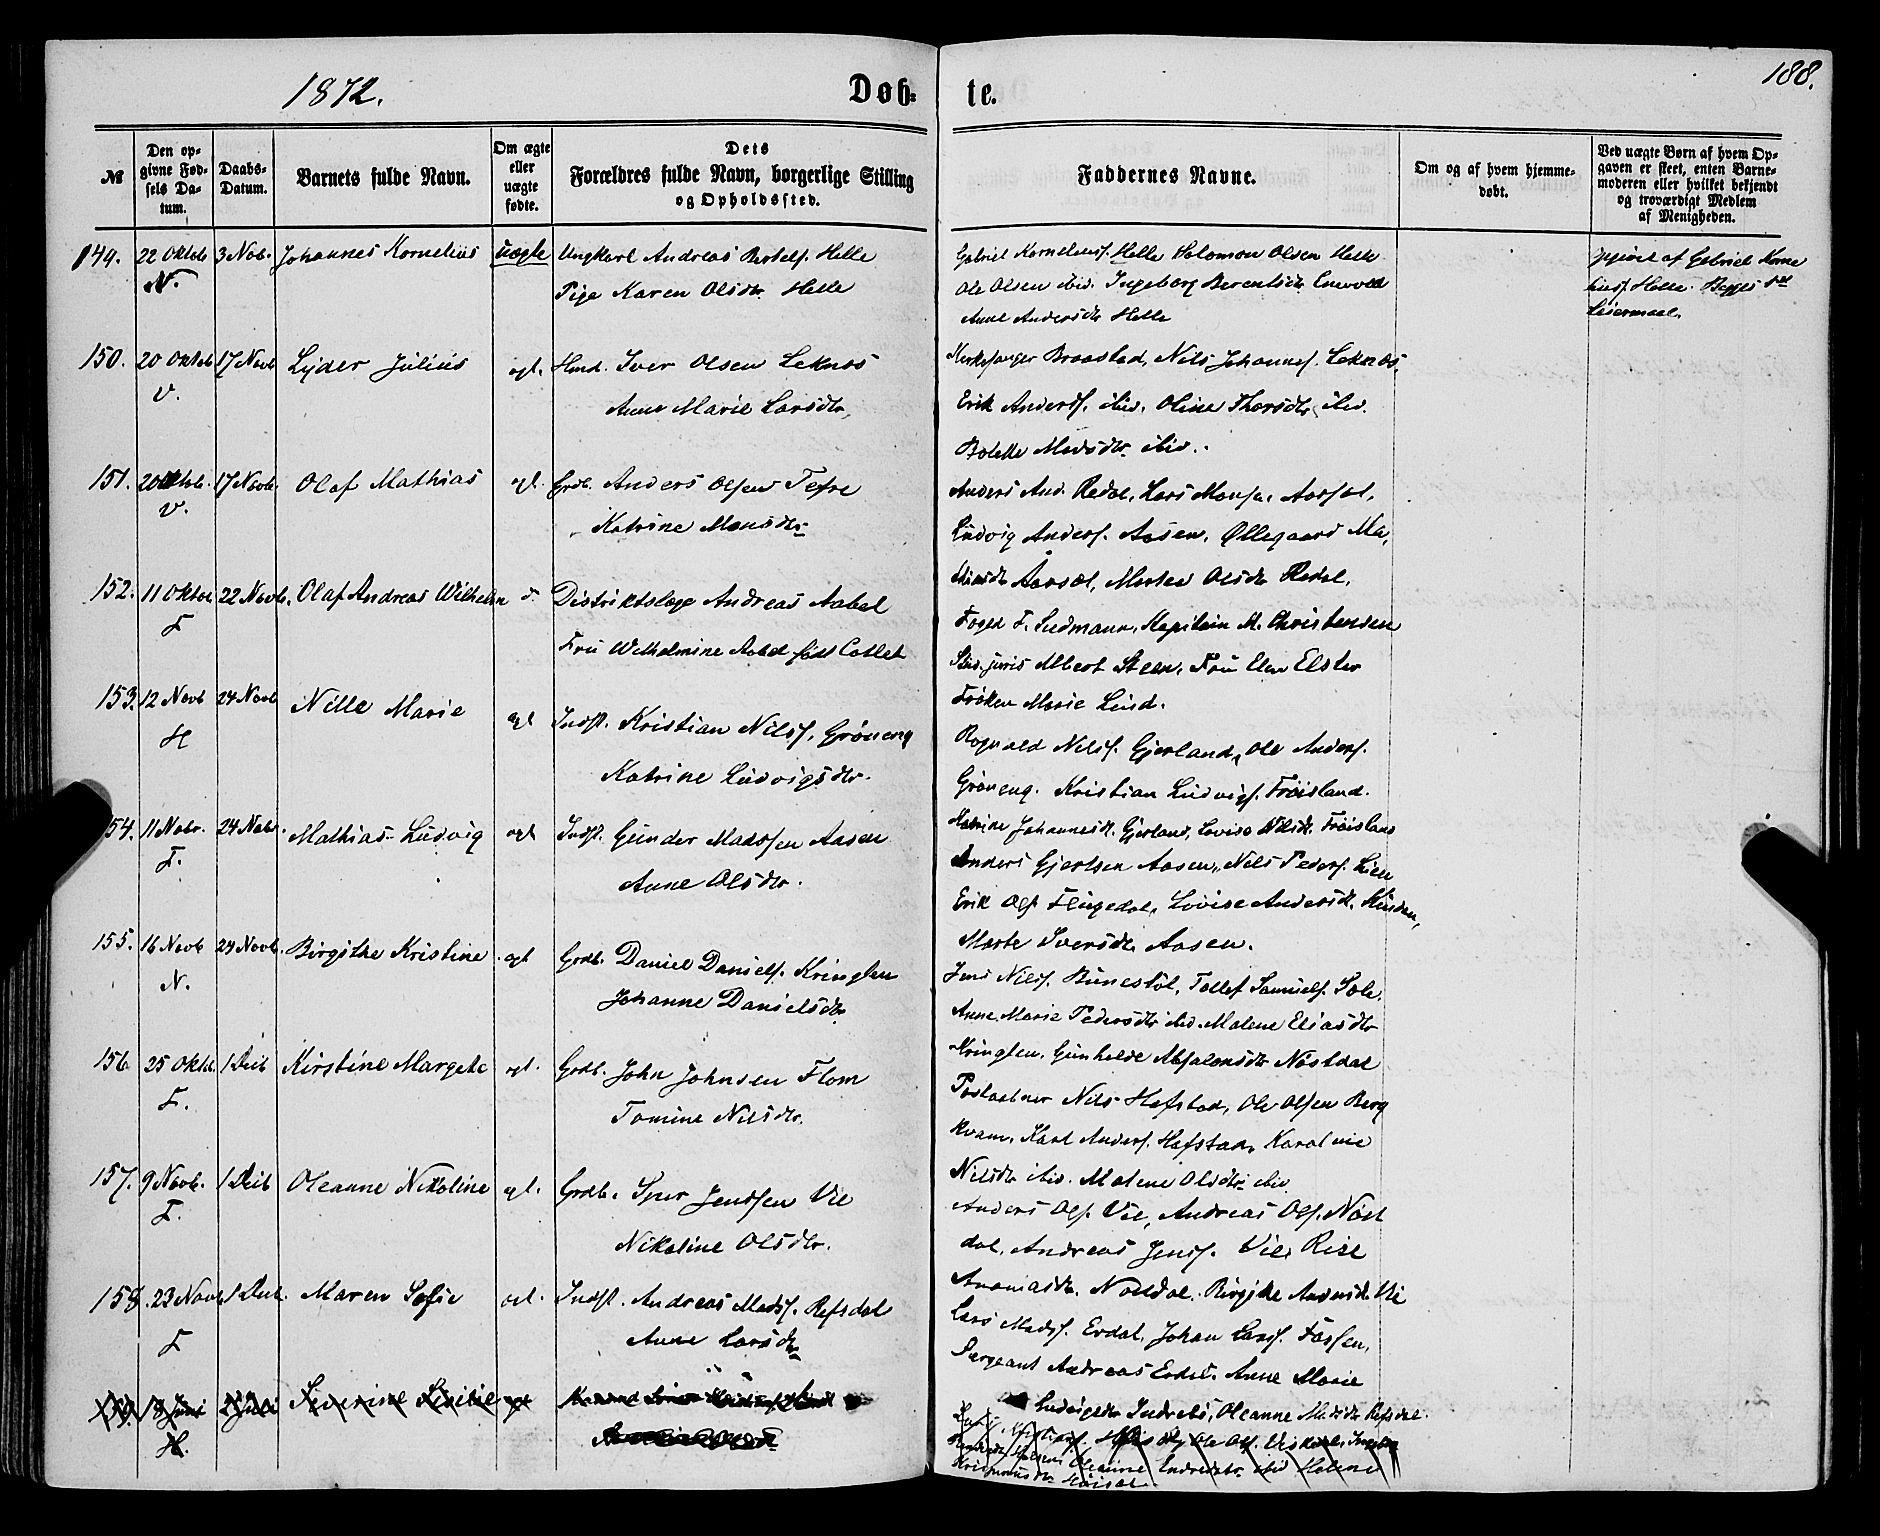 1872.
Døb-
te.
188.
№
Den op-
givne Fød-
sels Da-
tum.
Daabs-
Datum.
Barnets fulde Navn.
Om ægte
eller
uægte
fødte.
Dets
Forældres fulde Navn, borgerlige Stilling
og Opholdssted.
Faddernes Navne.
Om og af hvem hjemme-
døbt.
Ved uægte Børn af hvem Op-
gaven er skeet, enten Barne-
moderen eller hvilket bekjendt
og troværdigt Medlem
af Menigheden.
149. 22 Oktob 3 Nob. Johannes Kornelius uægte Ungkarl Andreas Bertels. Helle
N. Pige Karen Olsdtr Helle
Gabriel Korneliuss. Helle Salomon Olsen Helle
Ole Olsen ibid. Ingeborg Berentsdtr
Anne Andersdtr Helle
af Gabriel Korne
liuss. Helle. Begges 1st
Leiermaal.
150. 20 Oktob 17 Novb Lyder Julius egt. Hmd. Iver Olsen Leknæs
V. Anne Marie Larsdtr,
Kirkesanger Braastad, Nils Johanness. Leknæs,
Erik Anders. ibid. Oline Thorsdtr ibid.
Bolette Madsdtr ibid.
151. 20 Oktob. 17 Novb. Olaf Mathias egt. Grdb. Anders Olsen Tefre
V. Katrine Monsdtr
Anders And. Redal, Lars Monsen Aarsæt,
Ludvig Anders. Aasen, Øllegaard Ma,
Aarsæt, Marthe Olsdtr Redal,
152. 11 Oktob 22 Novb. Olaf Andreas Wilhelm d. Distriktslæge Andreas Aabel
F Fru Wilhelmine Aabel født Collet
Foged F. Ludmann, Kapitain M. Christensen
Stud. juris Albert Steen, Fru Elen Elster
Frøken Marie Lind.
153. 12 Novb 24 Novb Nille Marie egt Indst. Kristian Nilss. Grøneng
H Katrine Ludvigsdtr.
Rognald Nilss. Gjerland, Ole Anders.
Grøneng. Kristian Ludvigs. Frøisland.
Katrine Johannesdtr. Gjerland, Lovise Nilsdtr. Frøisland
54. 11 Nobr. 24 Nobr. Mathias Ludvig egt Indst. Gunder Madssen Aasen
F. Anne Olsdtr.
Anders Gjertsen Aasen, Nils Peders. Lien
Erik Ols. Flugedal, Lovise Andersdtr.
Marte Iversdtr Aasen.
155. 16 Novb 24 Novb. Birgithe Kristine egt Grdb. Daniel Daniels. Kringlen
N. Johanne Danielsdtr
Jens Nilss. Bunestøl, Tollef Samuels. Sole,
Anne Marie Pedersdtr ibid. Malene Eliasdtr
Kringlen, Gunhilde Absalonsdtr Nøstdal
156 25 Oktb. 1 Decb Kirstine Margete egt. Grdb. John Johnsen Flom
F. Tomine Nilsdtr.
Postaabner Nils Hafstad, Ole Olsen Berg
kvam, Karl Anders. Hafstad, Karoline
Nilsdtr ibid. Malene Olsdtr ibid
157. 9 Novb. 1 Decb Oleanne Nikoline egt. Grdb. Iver Jenssen Vie
F. Nikoline Olsdtr.
Anders Ols. Vie, Andreas Ols. Nøst
dal, Andreas Jenss. Vie,
Nøstdal. Birgithe Andersdtr. Vie
158. 23 Novb 1 Decb. Maren Sofie egt. Indst. Andreas Madss. Refsdal
F Anne Larsdtr
Lars Madss. Erdal, Johan Larss. Fossen,
Sergeant Andreas Erdal, Anne Marie
Ludvigsdtr Indrebø, Oleanne Madsdtr Refsdal.
159. 18 Juni Severine
H.
Ole Ols.
Oleanne Endresdtr ibid Malene